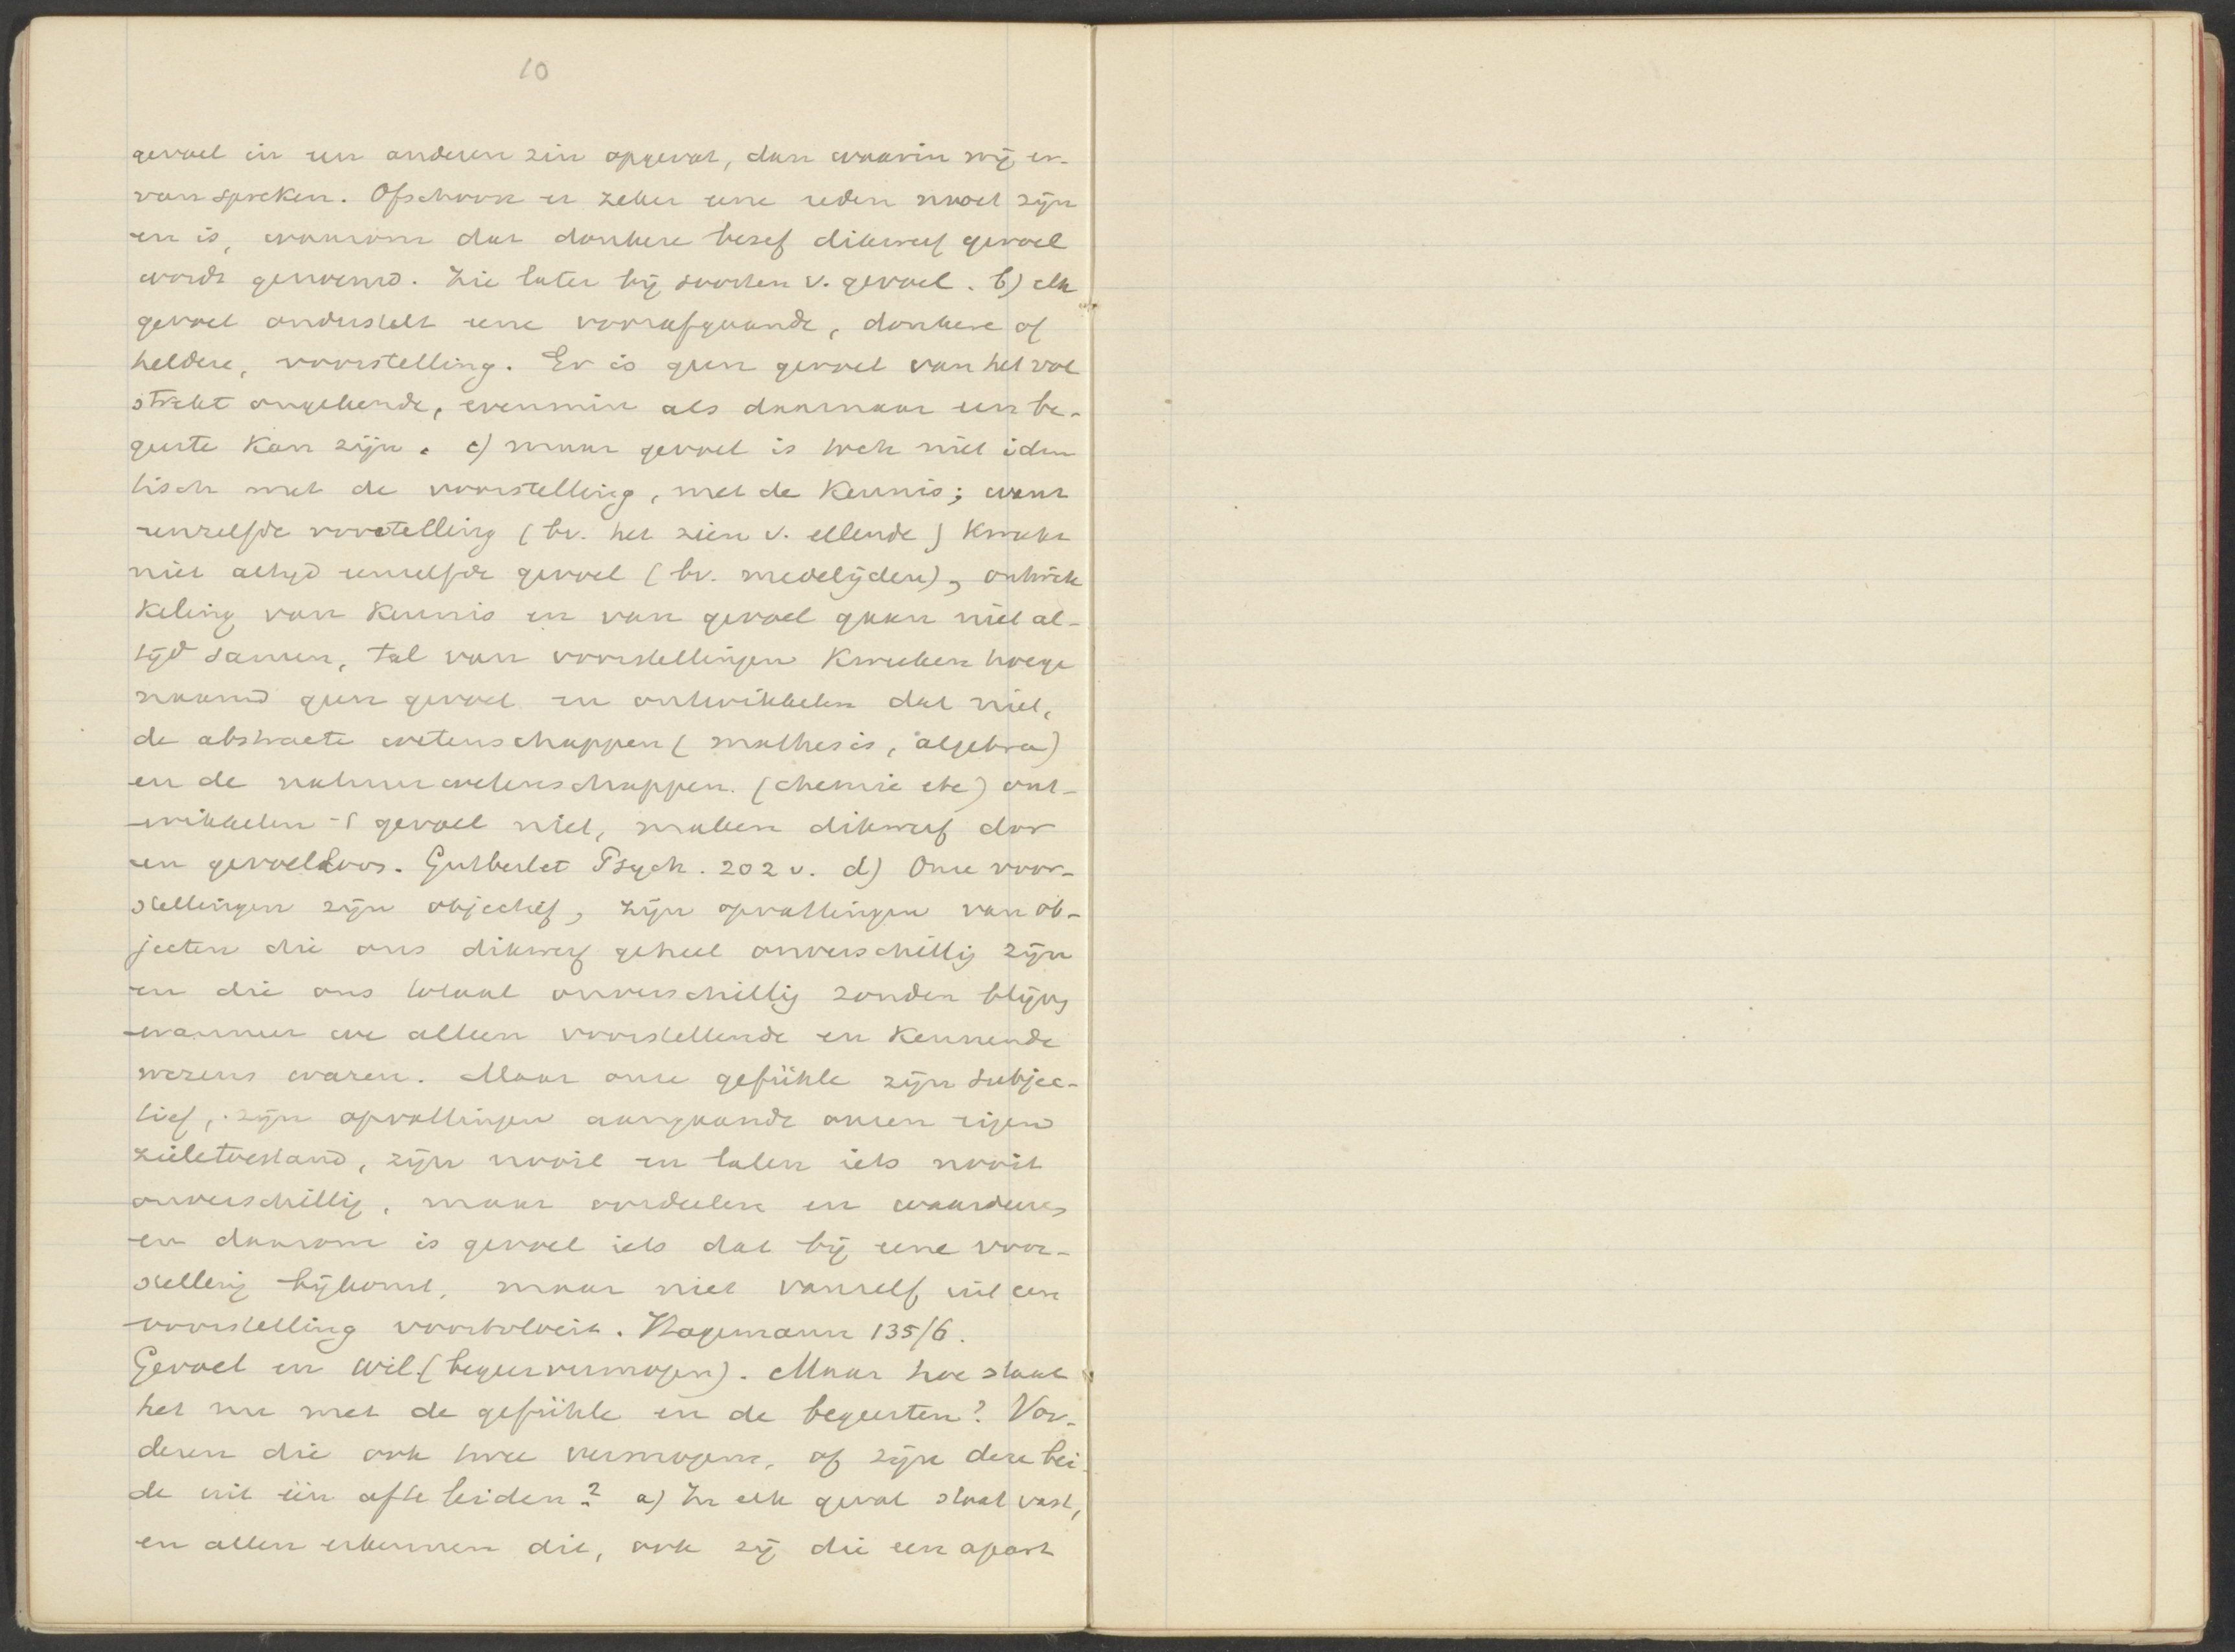 10
gevoel in een anderen zin opgevat, dan waarin wij er
van spreken. Ofschoon er zeker eene reden moet zijn
en is, waarom dat donkere besef dikwerf gevoel
wordt genoemd. Zie later bij soorten v. gevoel. b) elk
gevoel onderstelt eene voorafgaande, donkere of
heldere, voorstelling. Er is geen gevoel van het vol
strekt ongekende, evenmin als daarnaar een be-
geerte kan zijn. c) maar gevoel is toch niet iden
tisch met de voorstelling, met de kennis; want
eenzelfde voorstelling (bv. het zien v. ellende) kweekt
niet altijd eenzelfde gevoel (bv. medelijden), ontwik
keling van kennis en van gevoel gaan niet al-
tijd samen, tal van voorstellingen kweeken hoege
naamd geen gevoel en ontwikkelen dat niet,
de abstracte wetenschappen (mathesis, algebra)
en de natuurwetenschappen. (chemie etc) ont-
wikkelen 't gevoel niet, maken dikwerf dor
en gevoelloos. Gutberlet Psych. 202 v. d) Onze voor-
stellingen zijn objectief, zijn opvattingen van ob-
jecten die ons dikwerf geheel onverschillig zijn
en die ons totaal onverschillig zouden blijven
wanneer we alleen voorstellende en kennende
wezens waren. Maar onze gefühle zijn subjec-
tief, zijn opvattingen aangaande onzen eigen
zieletoestand, zijn nooit en laten iets nooit
onverschillig, maar oordeelen en waardeeren
en daarom is gevoel iets dat bij eene voor-
stelling bijkomt, maar niet vanzelf uit een
voorstelling voortvloeit. Hagemann 135/6.
Gevoel en wil (begeervermogen). Maar hoe staat
het nu met de gefühle en de begeerten? Vor-
deren die ook twee vermogens, of zijn deze bei
de uit één afteleiden? a) In elk geval staat vast,
en allen erkennen dit, ook zij die een apart